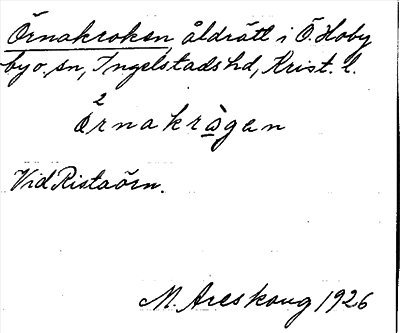 Örnakroken åldrätt i Ö. Hoby
by o. sn, Ingelstads hd, Krist. l.
2
örnakràgen
Vid Ristaörn.
M. Areskoug 1926